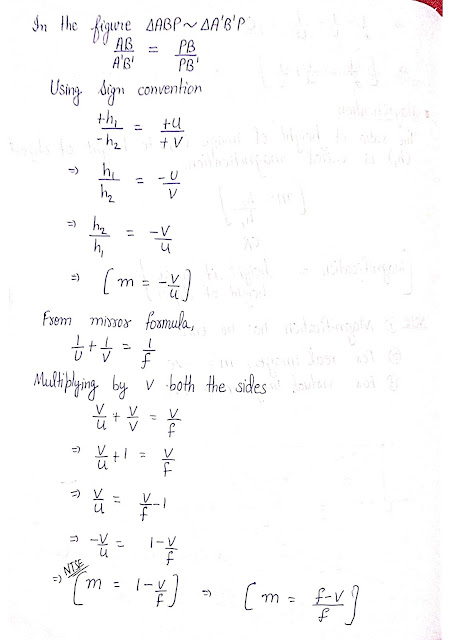 In the figure ΔABP ~ ΔA'B'P
AB/A'B' = PB/PB'
Using Sign convention
+h₁/-h₂ = +u/+v
⇒ h₁/h₂ = -u/v
⇒ h₂/h₁ = -v/u
⇒ [m = -v/u]
From mirror formula,
1/u + 1/v = 1/f
Multiplying by v both the sides.
v/u + v/v = v/f
⇒ v/u + 1 = v/f
⇒ v/u = v/f - 1
⇒ -v/u = 1 - v/f
NTSE
⇒ [m = 1 - v/f] ⇒ [m = f-v/f]